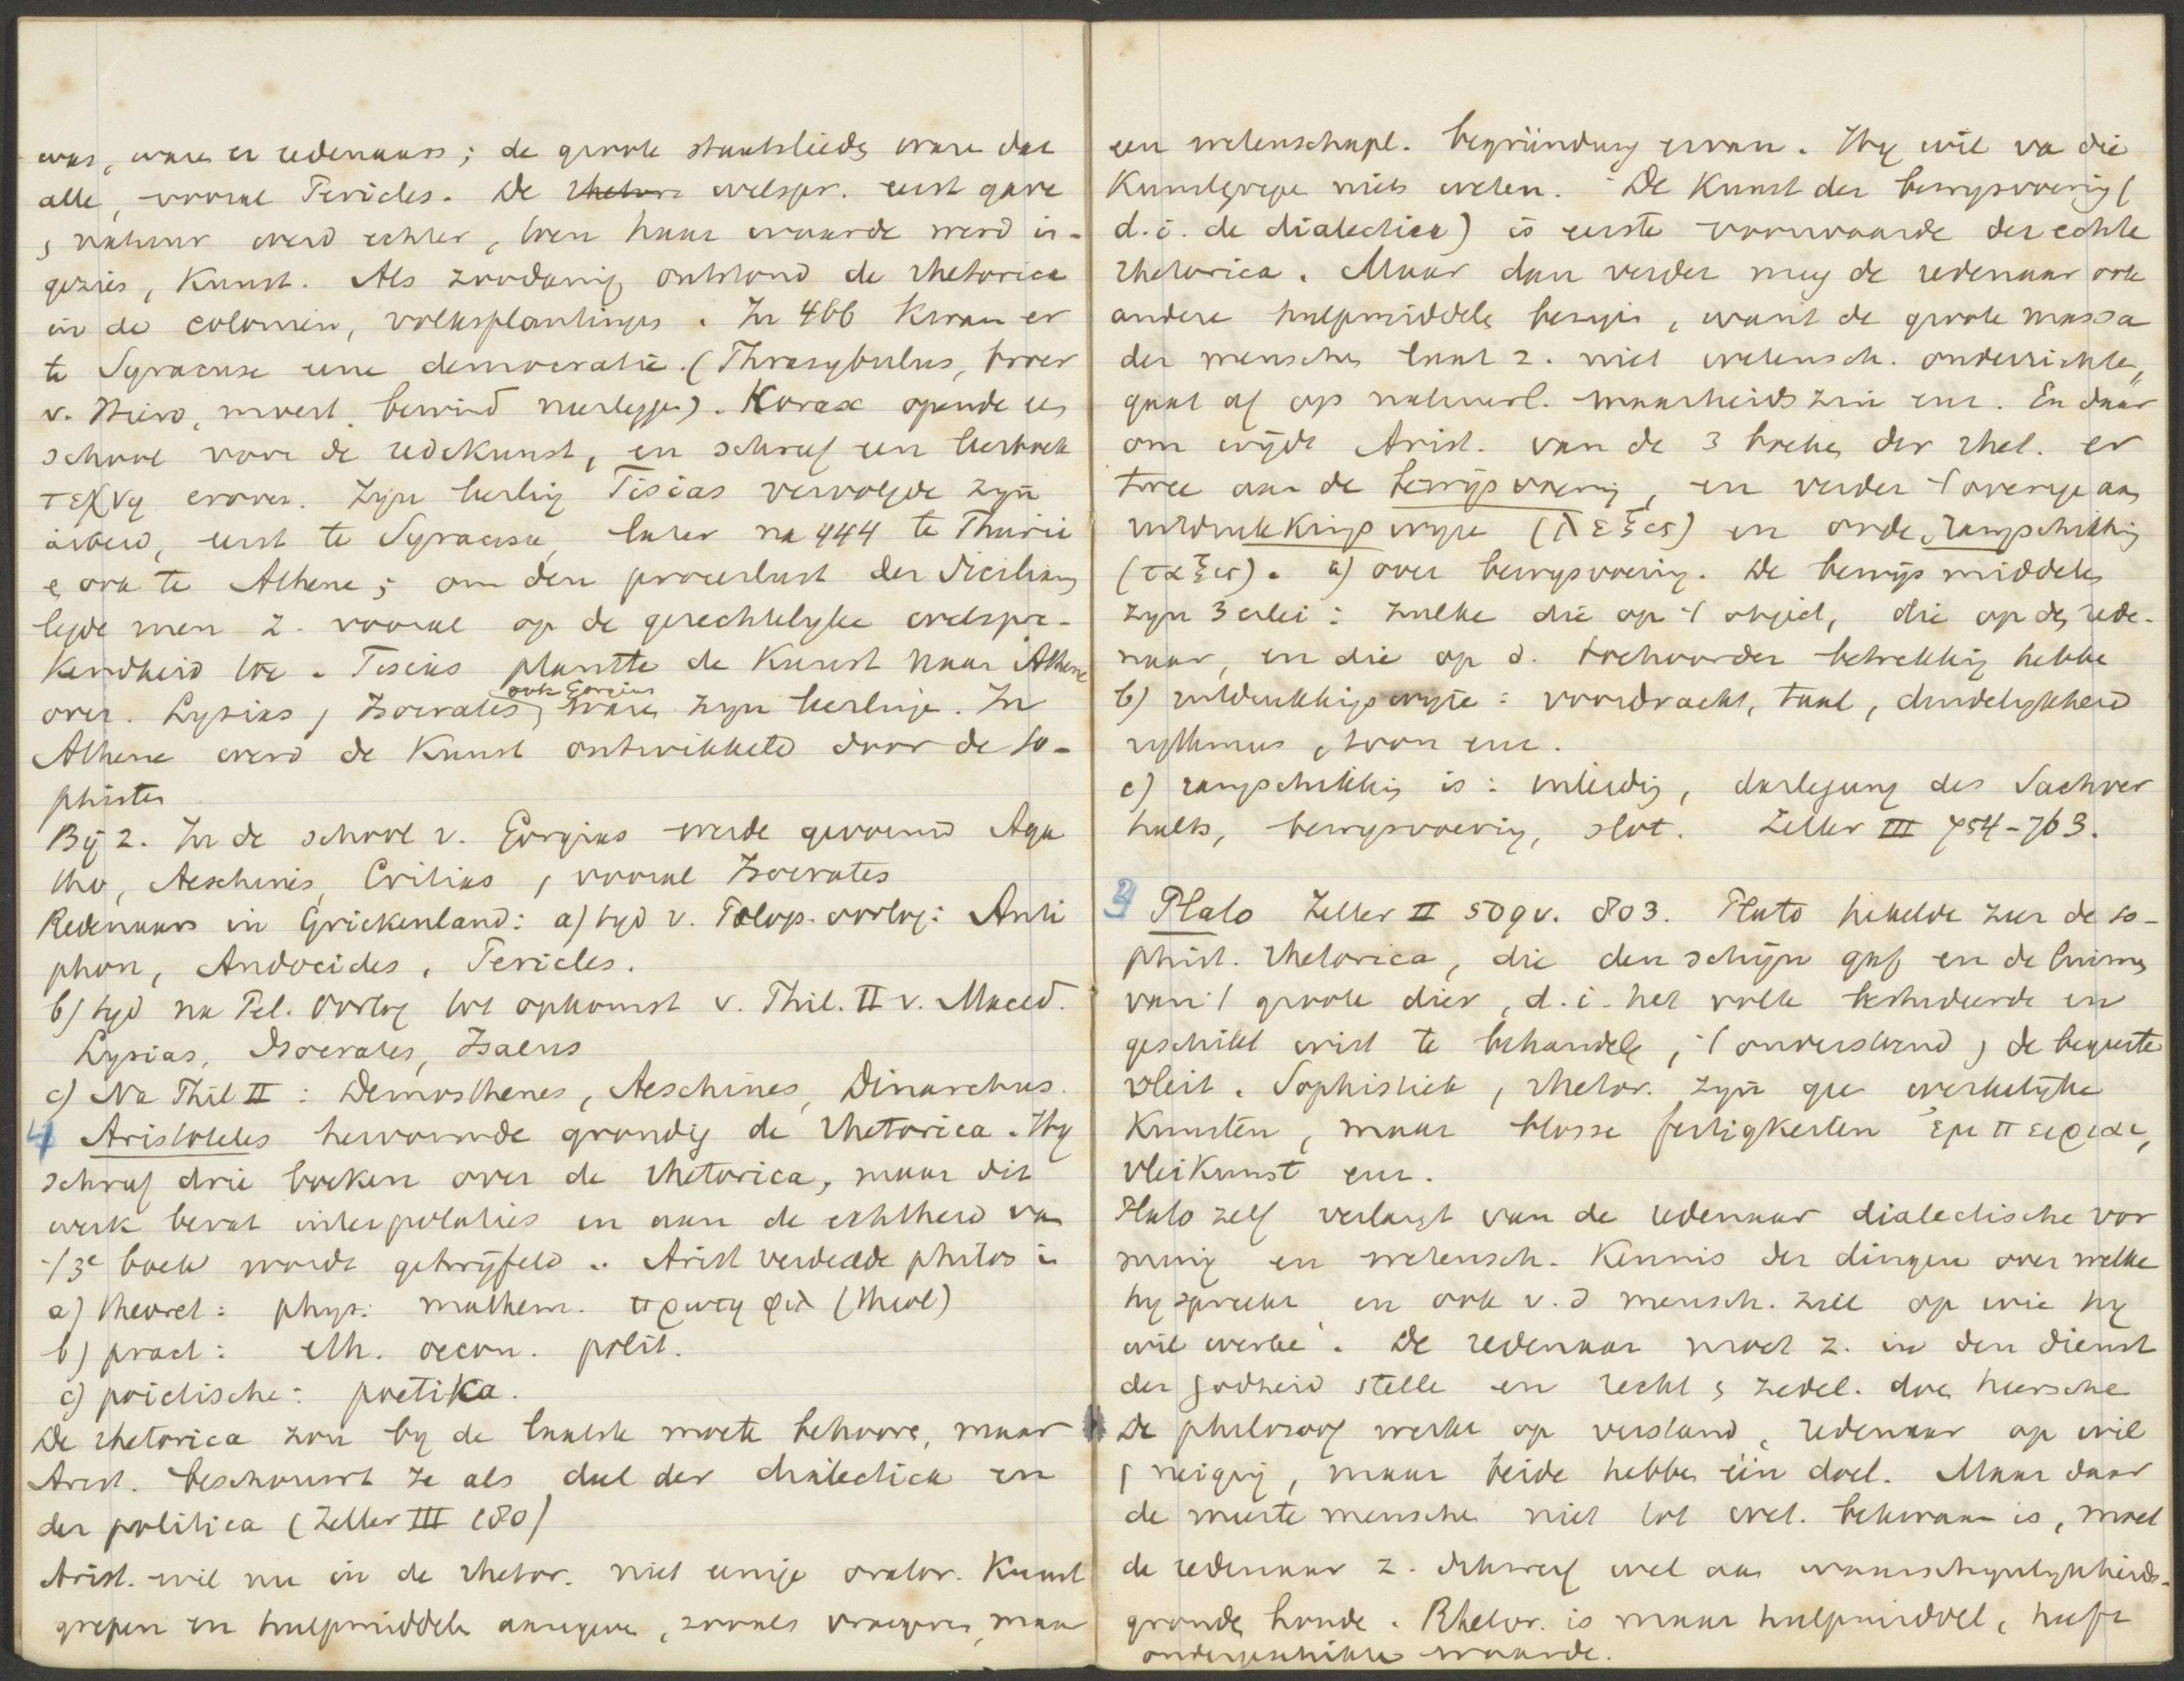 was, ware er redenaars; de groote staatslieden ware dat
alle, vooral Pericles. De rhetore welspr. eerst gave
, natuur werd echter, toen haar waarde werd in-
gezien, Kunst. Als zoodanig ontstond de rhetorica
in de coloniën, volksplantingen. In 466 kwam er
te Syracuse eene democratie. (Thrasybulus, broer
v. Hiero, moest bewind neerleggen). Korax opende een
school voor de redekunst, en schreef een leerboek
τεχνη erover. Zyn leerling Tisias vervolgde zyn
arbeid, eerst te Syracuse, later na 444 te Thurii
e ook te Athene; om den proceslust der Sicilianen
legde men z. vooral op de gerechtelyke welspre-
kendheid toe. Tisias plantte de Kunst naar Athene
over. Lysias, Isocrates, ook Gorgias ware zyn leerlinge. In
Athene werd de Kunst ontwikkeld door de so-
phisten
By z. In de school v. Gorgias werde gevormd Aga
tho, Aeschines, Critias, vooral Isocrates
Redenaars in Griekenland: a) tyd v. Pelop. oorlog: Anti
phon, Andocides, Pericles.
b) tyd na Pel. oorlog tot opkomst v. Phil. II v. Maced.
Lysias, Isocrates, Isaeus
c) Na Phil II: Demosthenes, Aeschines, Dinarchus.
4 Aristoteles hervormde grondig de rhetorica. Hy
schreef drie boeken over de rhetorica, maar dit
werk bevat interpolaties en aan de echtheid van
't 3e boek wordt getwyfeld. Arist verdeelde philos in
a) theoret: phys: mathem. πρωτη φιλ (theol)
b) pract: eth. oecon. polit.
c) poietische: poetika.
De rhetorica zou by de laatste moete behoore, maar
Arist. beschouwt ze als deel der dialectica en
der politica (Zeller III 180)
Arist. wil nu in de rhetor. niet eenige orator. Kunst
grepen en hulpmiddelen aangeven, zooals vroegere, maar
een wetenschapl. begründung ervan. Hy wil va die
Kunstgrepe niets weten. De Kunst der bewysvoering (
d.i. de dialectica) is eerste voorwaarde der echte
rhetorica. Maar dan verder mag de redenaar ook
andere hulpmiddelen bezigen, want de groote massa
der menschen laat z. niet wetensch. onderrichten,
gaat af op natuurl. waarheidszin enz. En daar
om wijdt Arist. van de 3 boeken der rhet. er
twee aan de bewijsvoering, en verder 't overige aan
uitdrukkingswyze (λεξις) en orde, rangschikking
(ταξις). a) over bewysvoering. De bewijsmiddelen
zyn 3erlei: zulke die op 't object, die op den rede-
naar, en die op d. toehoorder betrekking hebbe
b) uitdrukkingswyze: voordracht, taal, duidelykheid
rythmus, toon enz.
c) rangschikking is: inleiding, darlegung des Sachver
halts, bewysvoering, slot. Zeller III 754-763.
3 Plato Zeller II 509 v. 803. Plato hekelde zeer de so-
phist. rhetorica, die den schijn gaf en de luimen
van 't groote dier, d.i. het volk bestudeerde en
geschikt wist te behandele, 't onverstand, de begeerte
vleit. Sophistiek, rhetor. zyn gee werkelijke
Kunsten, maar blosse fertigkeiten ἐμπειριαι,
vleikunst enz.
Plato zelf verlangt van de redenaar dialectische vor
ming en wetensch. Kennis der dingen over welke
hy spreekt en ook v.d mensch. ziel op wie hy
wil werke. De redenaar moet z. in den dienst
der godheid stelle en recht , zedel. doen heersche
De philosoof werkt op verstand, redenaar op wil
, neiging, maar beide hebben één doel. Maar daar
de meeste mensche niet tot wet. bekwaam is, moet
de redenaar z. dikwerf wel aan waarschynlykheids-
gronden houde. Rhetor. is maar hulpmiddel, heeft
ondergeschikte waarde.